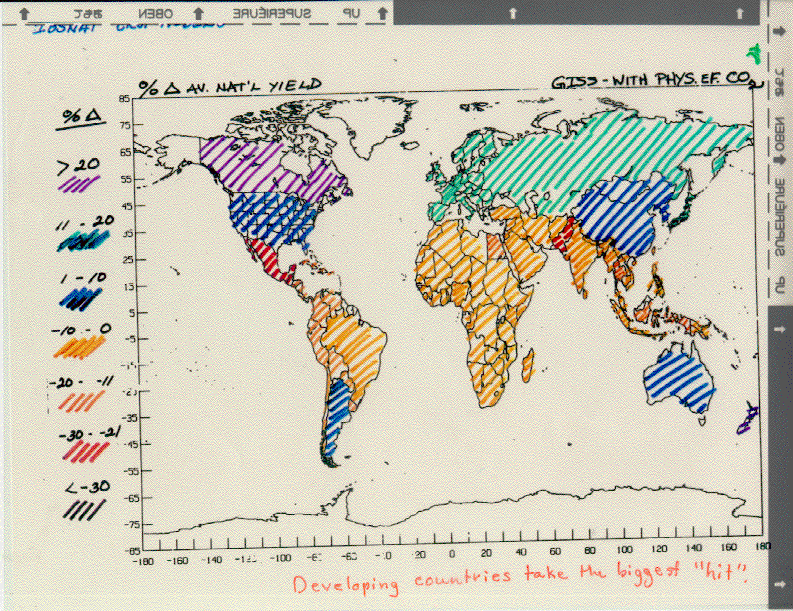 UP SUPERIEURE OBEN
% Δ AV. NAT'L YIELD
GISS - WITH PHYS. EF. CO2
% Δ
> 20
11 - 20
1 - 10
-10 - 0
-20 - -11
-30 - -21
< -30
85
75
65
55
45
35
25
15
5
-5
-25
-35
-45
-55
-65
-75
-85
-180 -160 -140 -120 -100 -60 20 0 20 40 60 80 100 120 140 160 180
UP SUPERIEURE OBEN
Developing countries take the biggest "hit".